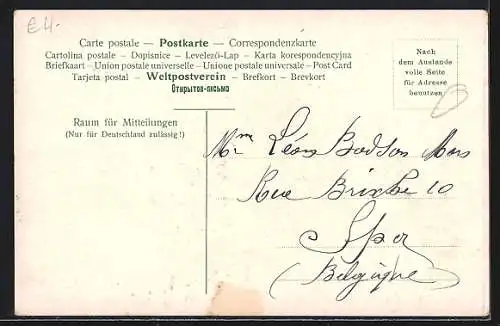 E4.
Carte postale — Postkarte — Correspondenzkarte
Cartolina postale – Dopisnice – Levelező-Lap – Karta korespondencyjna
Briefkaart – Union postale universelle – Unione postale universale – Post Card
Tarjeta postal – Weltpostverein – Brefkort – Brevkort
Открытое-письмо
Nach
dem Auslande
volle Seite
für Adresse
benutzen
Raum für Mitteilungen
(Nur für Deutschland zulässig!)
Mme Léon Bodson
Rue Brixhe 10
Spa
(Belgique)